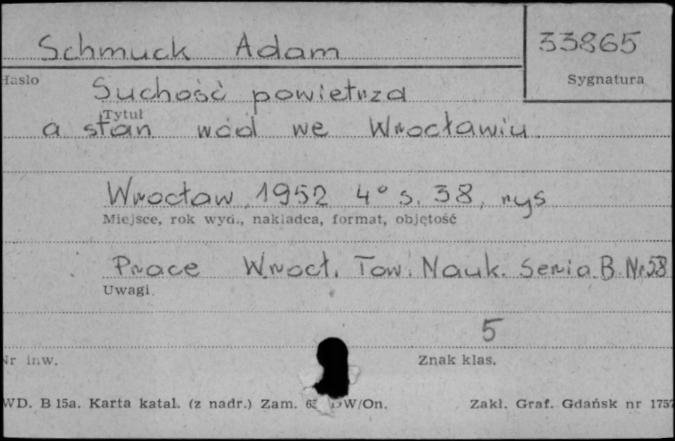 Schmuck Adam
33865
Hasło
Sygnatura
Suchość powietrza
Tytuł
a stan wód we Wrocławiu.
Wrocław, 1952 4° s. 38, rys
Miejsce, rok wyd., nakładca, format, objętość
Prace Wrocł. Tow. Nauk. Seria B. Nr 58
Uwagi
5
Nr inw.
Znak klas.
WD. B 15a. Karta katal. (z nadr.) Zam. W/On.
Zakł. Graf. Gdańsk nr 1757